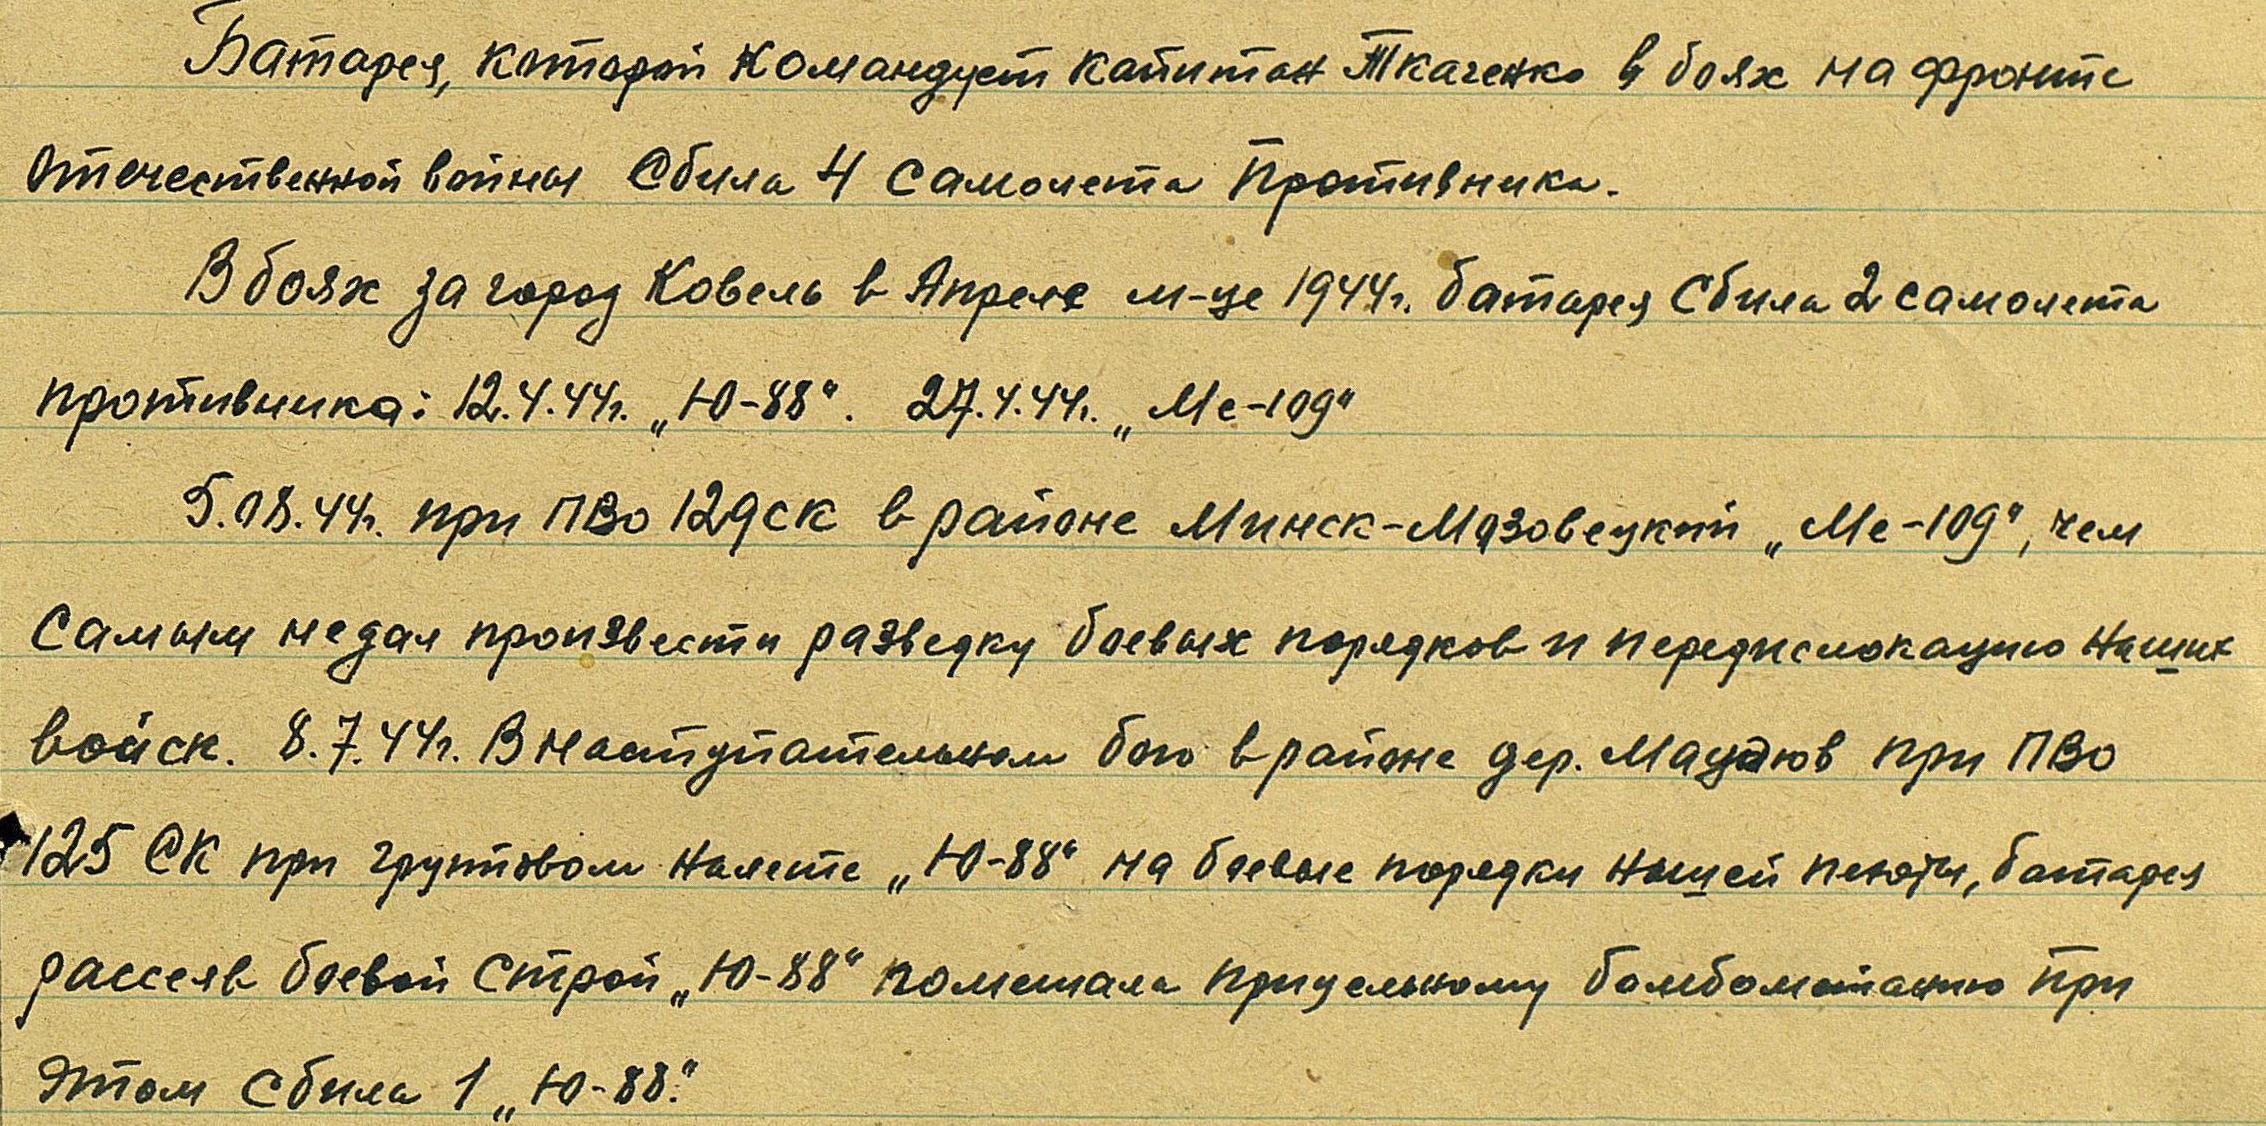 Батарея, которой командует капитан Ткаченко в боях на фронте
Отечественной войны сбила 4 самолета противника.
В боях за город Ковель в Апреле м-це 1944г. батарея сбила 2 самолета
противника: 12.4.44г. „Ю-88“. 27.4.44г. „Ме-109“
5.08.44г. при ПВО 129ск в районе Минск-Мазовецкий „Ме-109“, чем
самым не дал произвести разведку боевых порядков и передислокацию наших
войск. 8.7.44г. В наступательном бою в районе дер. Мацеюв при ПВО
125 СК при групповом налете „Ю-88“ на боевые порядки нашей пехоты, батарея
рассеяв боевой строй „Ю-88“ помешала прицельному бомбометанию при
этом сбила 1 „Ю-88“.